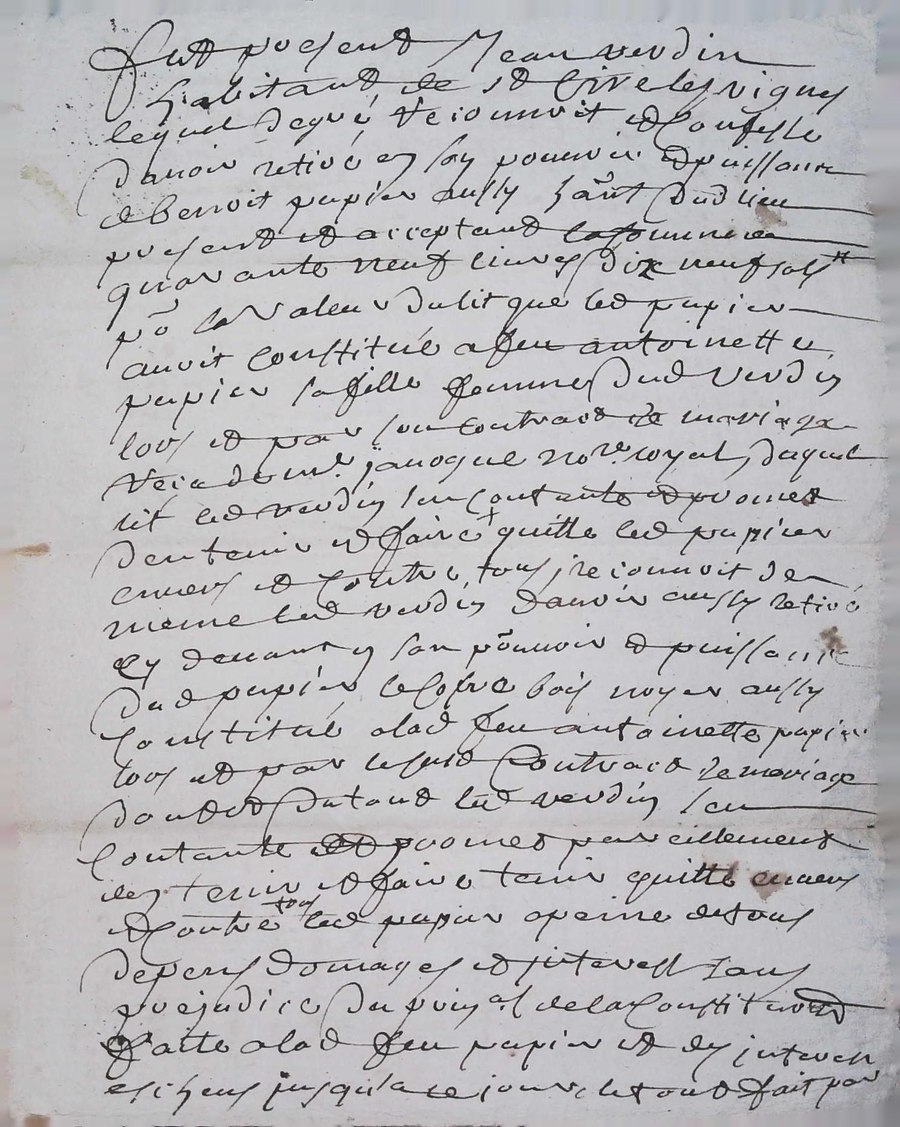 fut present Jean verdin
habitant de st Cire les vignes
lequel degré reconnoit et confesse
davoir retiré en son pouvoir et puissance
de benoit papier aussy hant dudlieu
present et acceptant la somme
quarante neuf livres dix neuf sols
po la valeur du lit que led papier
avoit constitué a feu antoinette
papier sa fille femme dud verdin
lors et par son contract de mariage
receu de me janogue nore royal, duquel
lit led verdin sen contante et promet
den tenir et faire + quitte led papier
envers et contre tous, reconnoit de
meme led verdin davoir aussy retiré
cy devant en son pouvoir et puissance
dud papier le cofre bois noyer aussy
constitué alad feu antoinette papier
lors et par lesusd contract de mariage
dont et du tout led verdin sen
contante et promet pareillement
den tenir et faire tenir quitte envers
et contre tous led papier a peine de tous
depens domages et interest sans
prejudice du prinal de la constitution
faite alad feu papier et des interest
escheus jusqu'a ce jour, le tout fait par